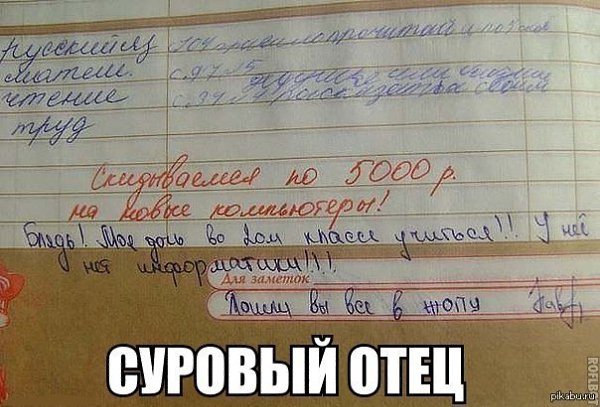 русский яз 104
матем. с. 97
чтение с. 34
труд
Скидываемся по 5000 р.
на новые компьютеры!
Блядь! Моя дочь во 2ом классе учиться!!! У неё
нет информатики!!!!
Для заметок
Пошли вы все в жопу
СУРОВЫЙ ОТЕЦ
pikabu.ru